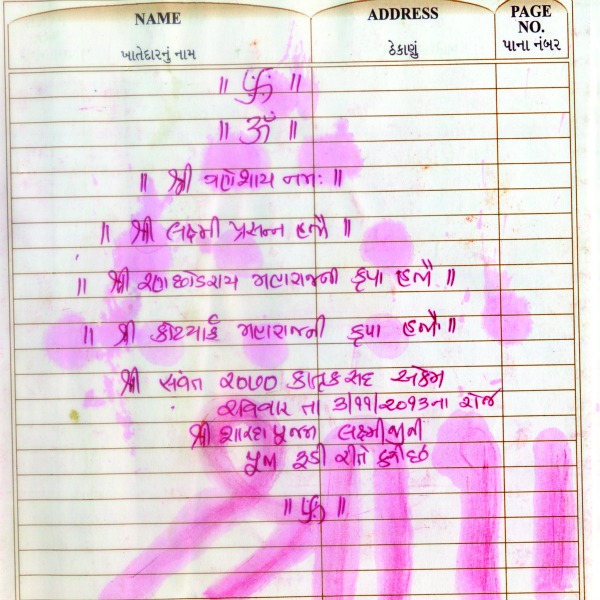 NAME ADDRESS PAGE NO.
ખાતેદારનું નામ ઠેકાણું પાના નંબર
॥ 卐 ॥
॥ ૐ ॥
॥ શ્રી ગણેશાય નમઃ ॥
॥ શ્રી લક્ષ્મી પ્રસન્ન હજો ॥
॥ શ્રી રણછોડરાય મહારાજની કૃપા હજો ॥
॥ શ્રી કોટયાર્ક મહારાજની કૃપા હજો ॥
શ્રી સવંત ૨૦૭૦ કારતક સુદ એકમ
રવિવાર તા ૩/૧૧/૨૦૧૩ના રોજ
શ્રી શારદા પૂજન લક્ષ્મીજીની
પૂજા રૂડી રીતે કરીછે
॥ 卐 ॥